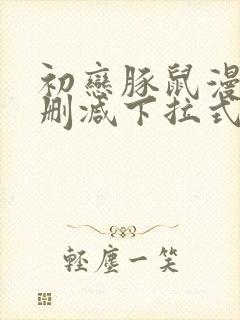 初戀豚鼠漫
刪減下拉式
輕塵一笑